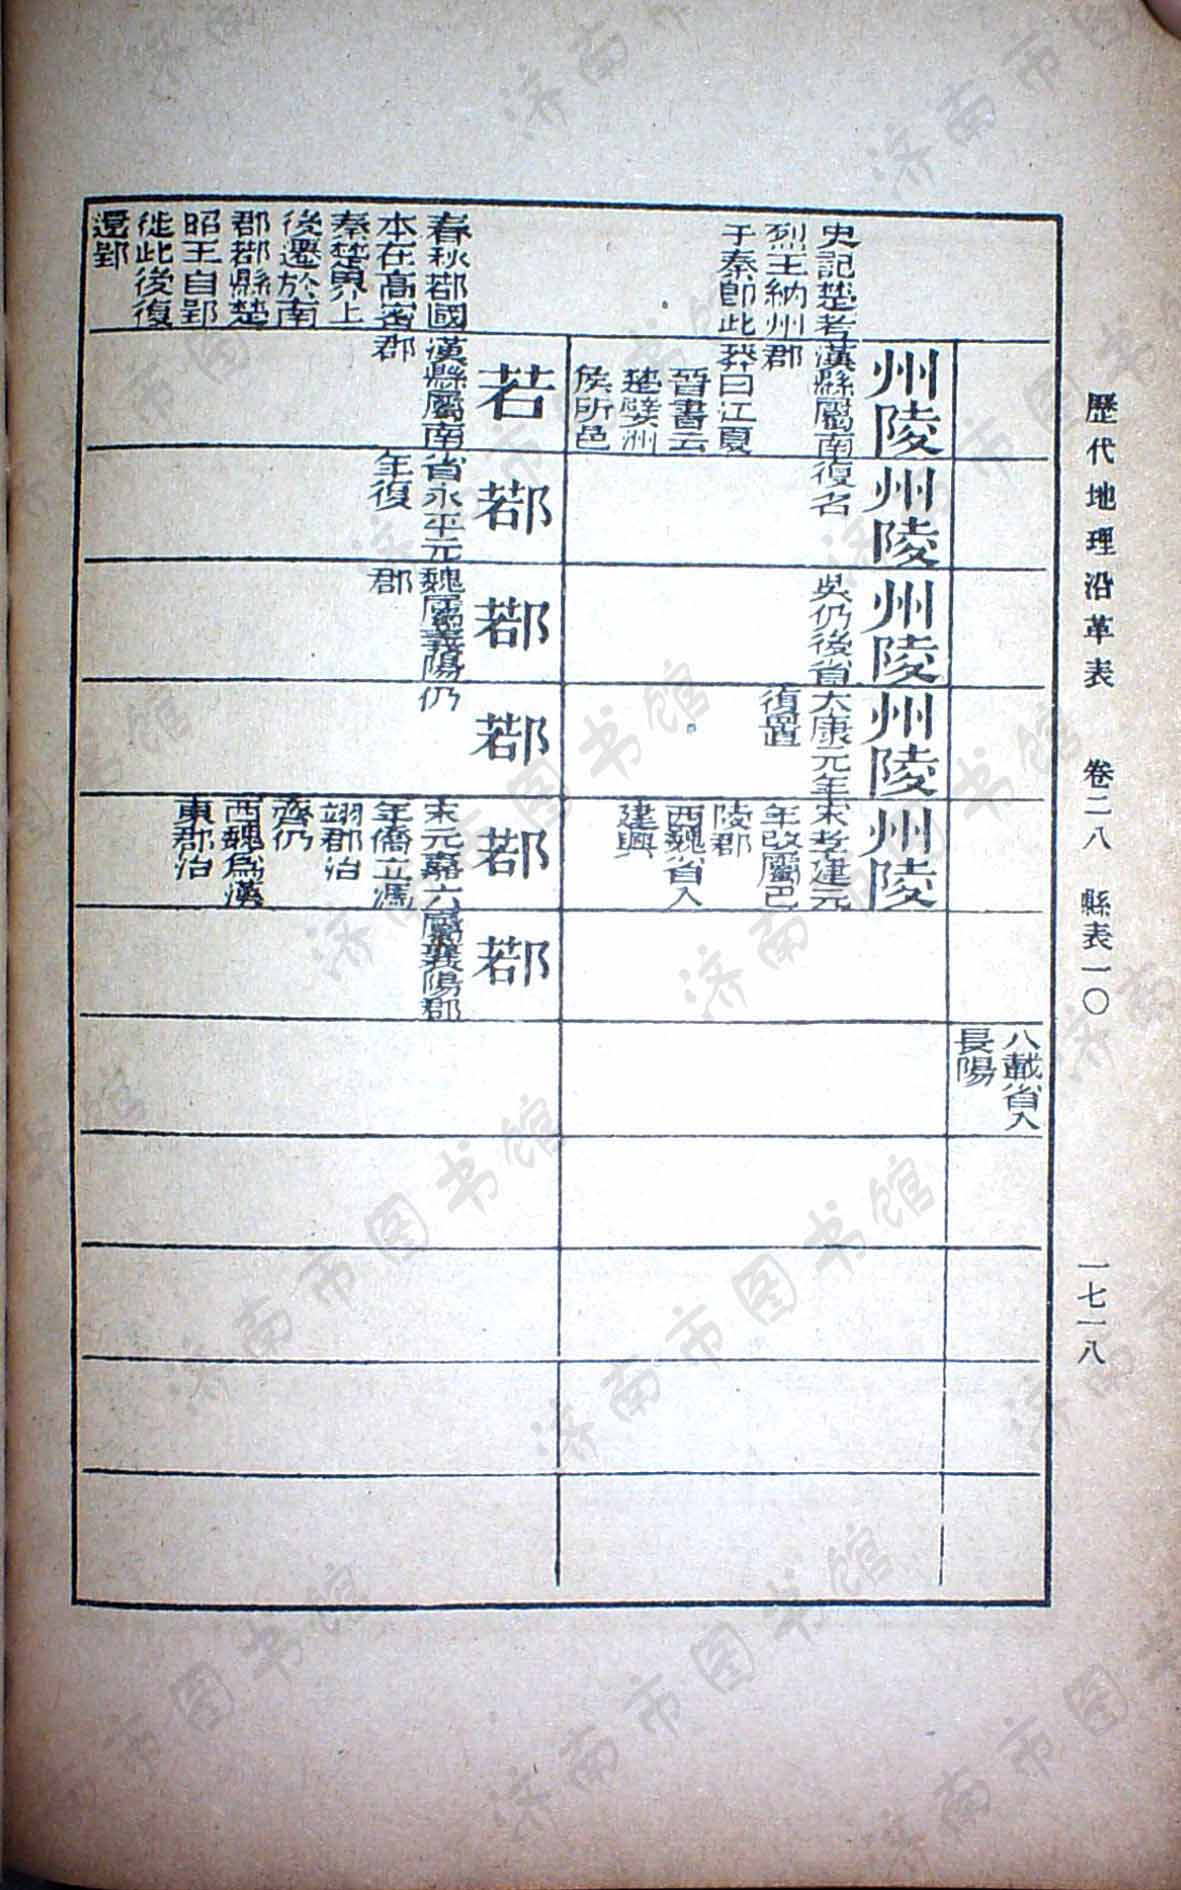 歷代地理沿革表 卷二八 縣表一〇 一七一八
八載省入
長陽
史記楚考
烈王納州
于秦卽此
州陵
漢縣屬南
郡
莽曰江夏
晉書云
楚嬖州
侯所邑
州陵
復名
州陵
吳仍後省
州陵
太康元年
復置
州陵
宋孝建元
年改屬巴
陵郡
西魏省入
建興
春秋鄀國
本在商密
秦楚界上
後遷於南
郡鄀縣楚
昭王自郢
徙此後復
還郢
若
漢縣屬南
郡
鄀
省永平元
年復
鄀
魏屬義陽
郡
鄀
仍
鄀
宋元嘉六
年僑立馮
翊郡治
齊仍
西魏爲漢
東郡治
鄀
屬襄陽郡
济南市图书馆